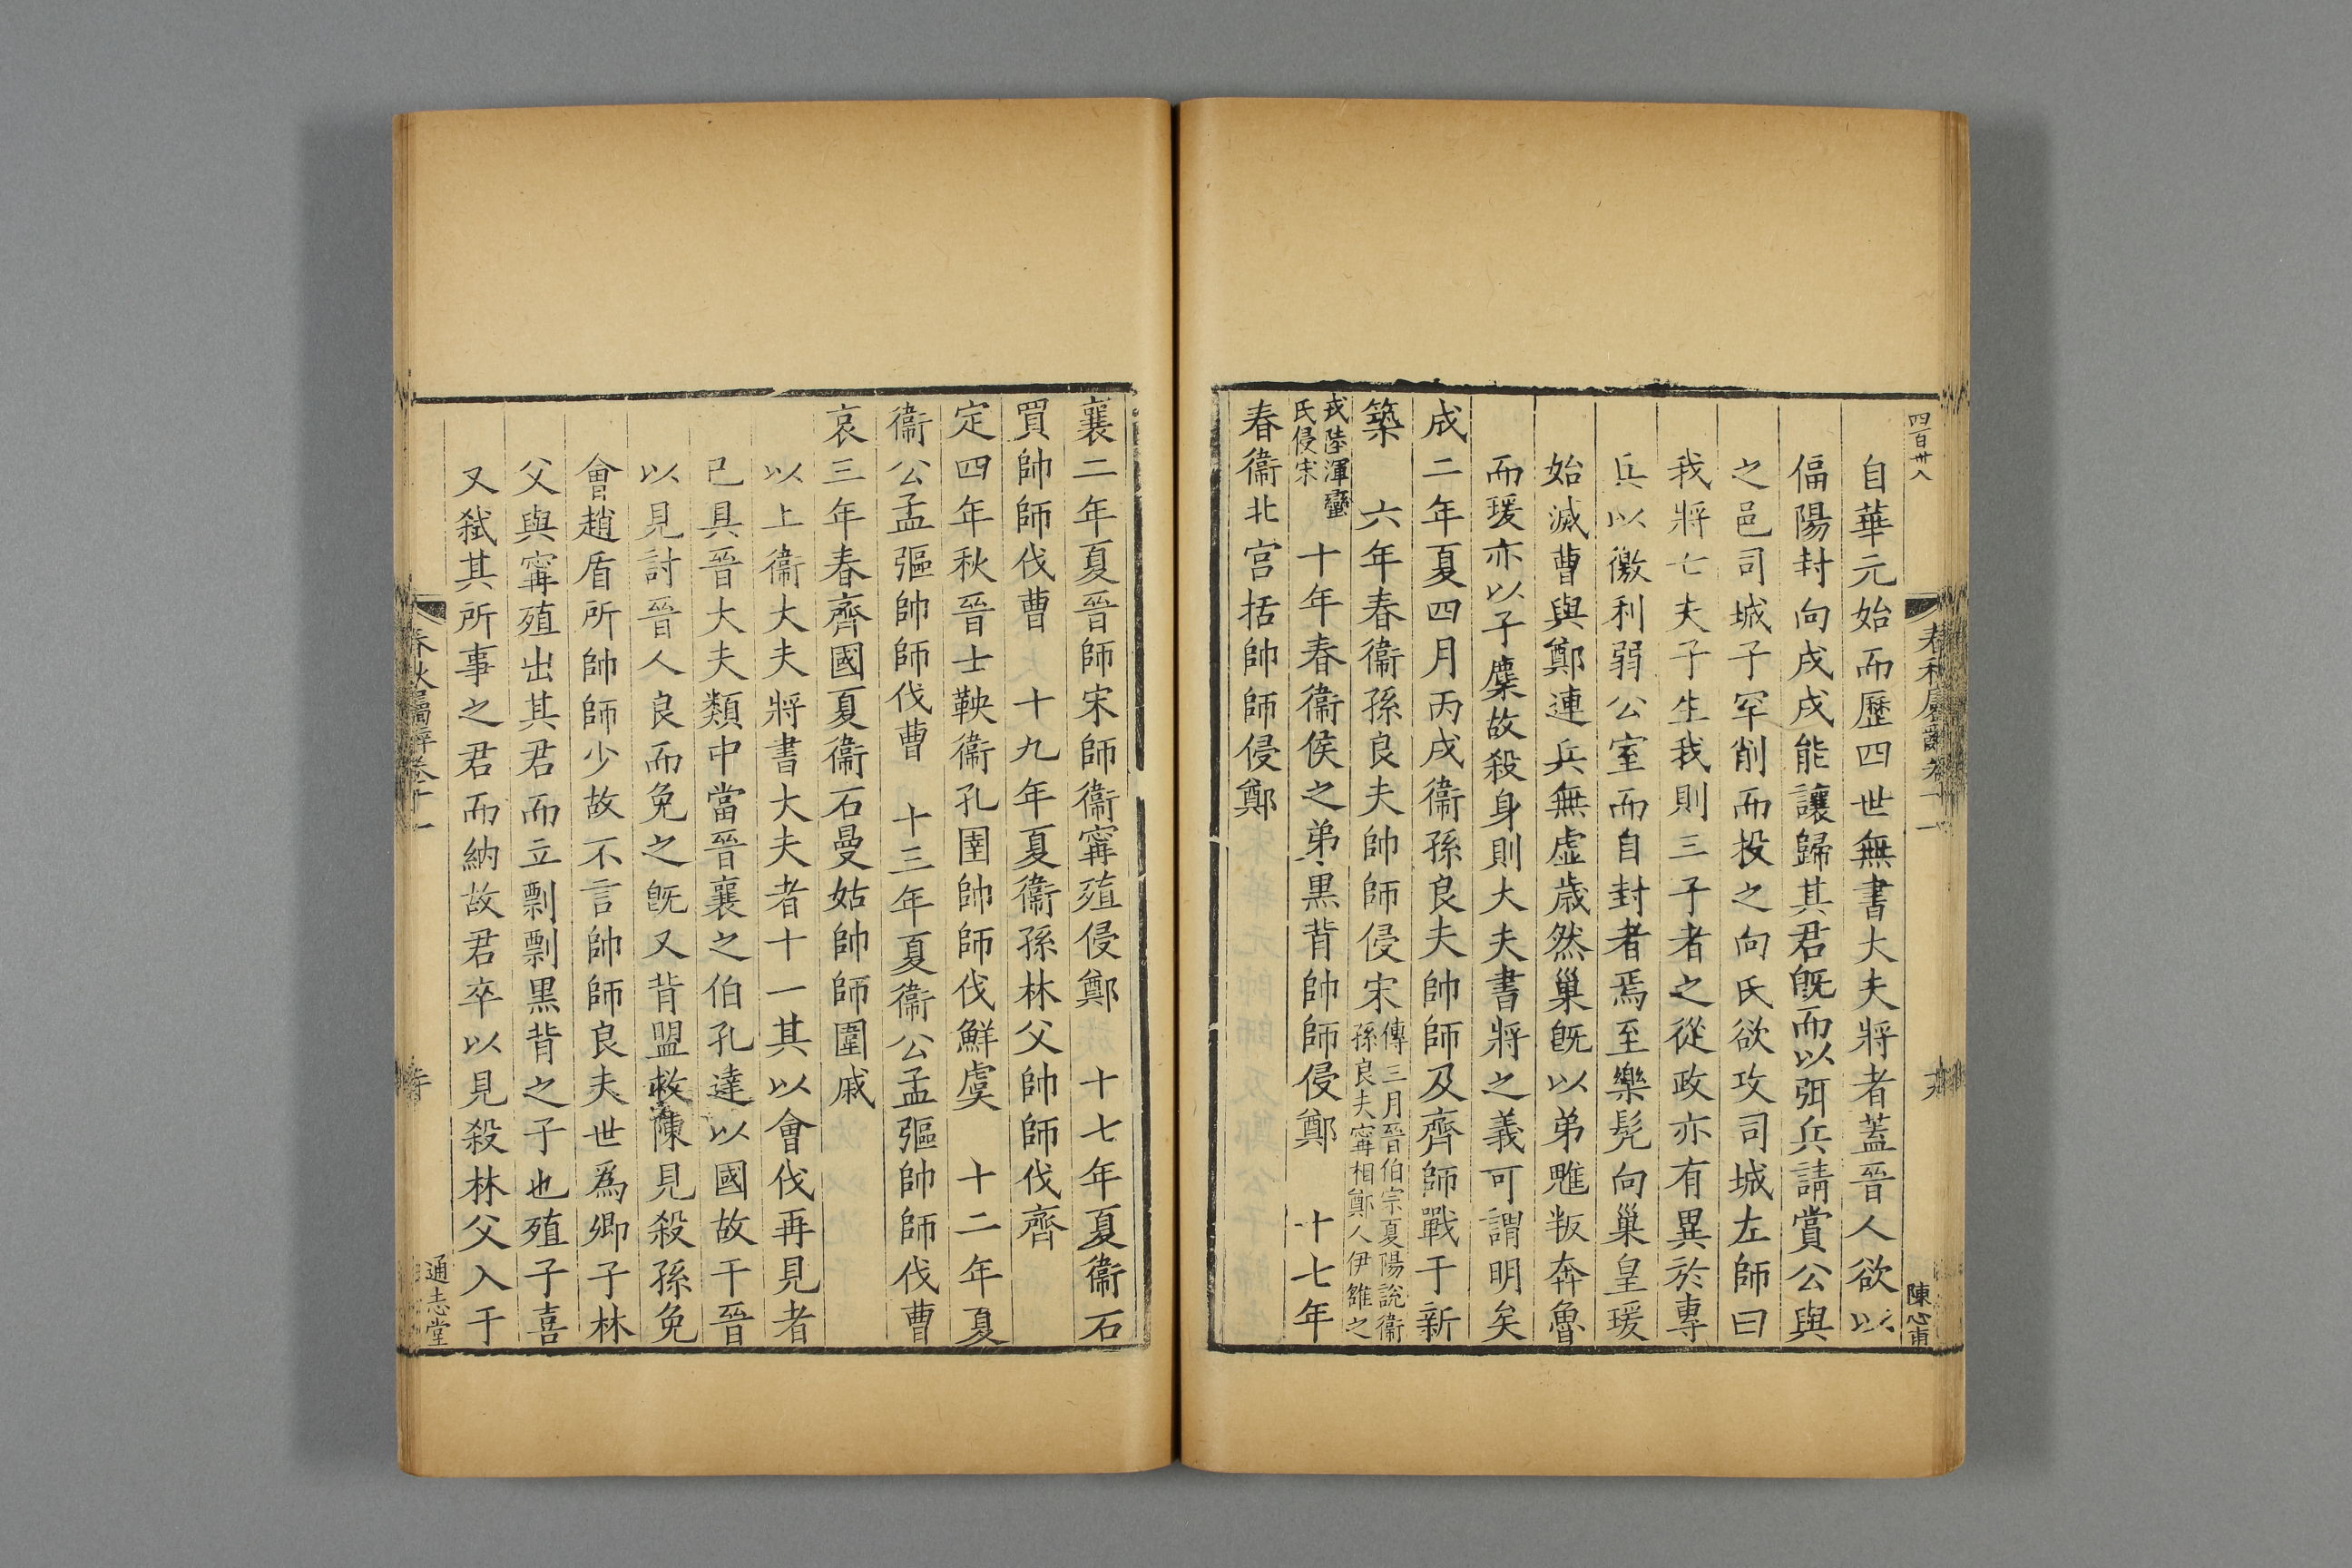 四百卅八
春秋屬辭卷十一
陳心甫
自華元始而歷四世無書大夫將者蓋晉人欲以
偪陽封向戌戌能讓歸其君旣而以弭兵請賞公與
之邑司城子罕削而投之向氏欲攻司城左師曰
我將亡夫子生我則三子者之從政亦有異於專
兵以徼利弱公室而自封者焉至樂髡向巢皇瑗
始滅曹與鄭連兵無虛歲然巢旣以弟魋叛奔魯
而瑗亦以子麇故殺身則大夫書將之義可謂明矣
成二年夏四月丙戌衞孫良夫帥師及齊師戰于新
築　六年春衞孫良夫帥師侵宋傳三月晉伯宗夏陽說衞孫良夫甯相鄭人伊雒之
戎陸渾蠻氏侵宋　十年春衞侯之弟黑背帥師侵鄭　十七年
春衞北宮括帥師侵鄭
襄二年夏晉師宋師衞甯殖侵鄭　十七年夏衞石
買帥師伐曹　十九年夏衞孫林父帥師伐齊
定四年秋晉士鞅衞孔圉帥師伐鮮虞　十二年夏
衞公孟彄帥師伐曹　十三年夏衞公孟彄帥師伐曹
哀三年春齊國夏衞石曼姑帥師圍戚
以上衞大夫將書大夫者十一其以會伐再見者
已具晉大夫類中當晉襄之伯孔達以國故干晉
以見討晉人良而免之旣又背盟救陳見殺孫免
會趙盾所帥師少故不言帥師良夫世爲卿子林
父與甯殖出其君而立剽剽黑背之子也殖子喜
又弒其所事之君而納故君卒以見殺林父入于
春秋屬辭卷十一
通志堂